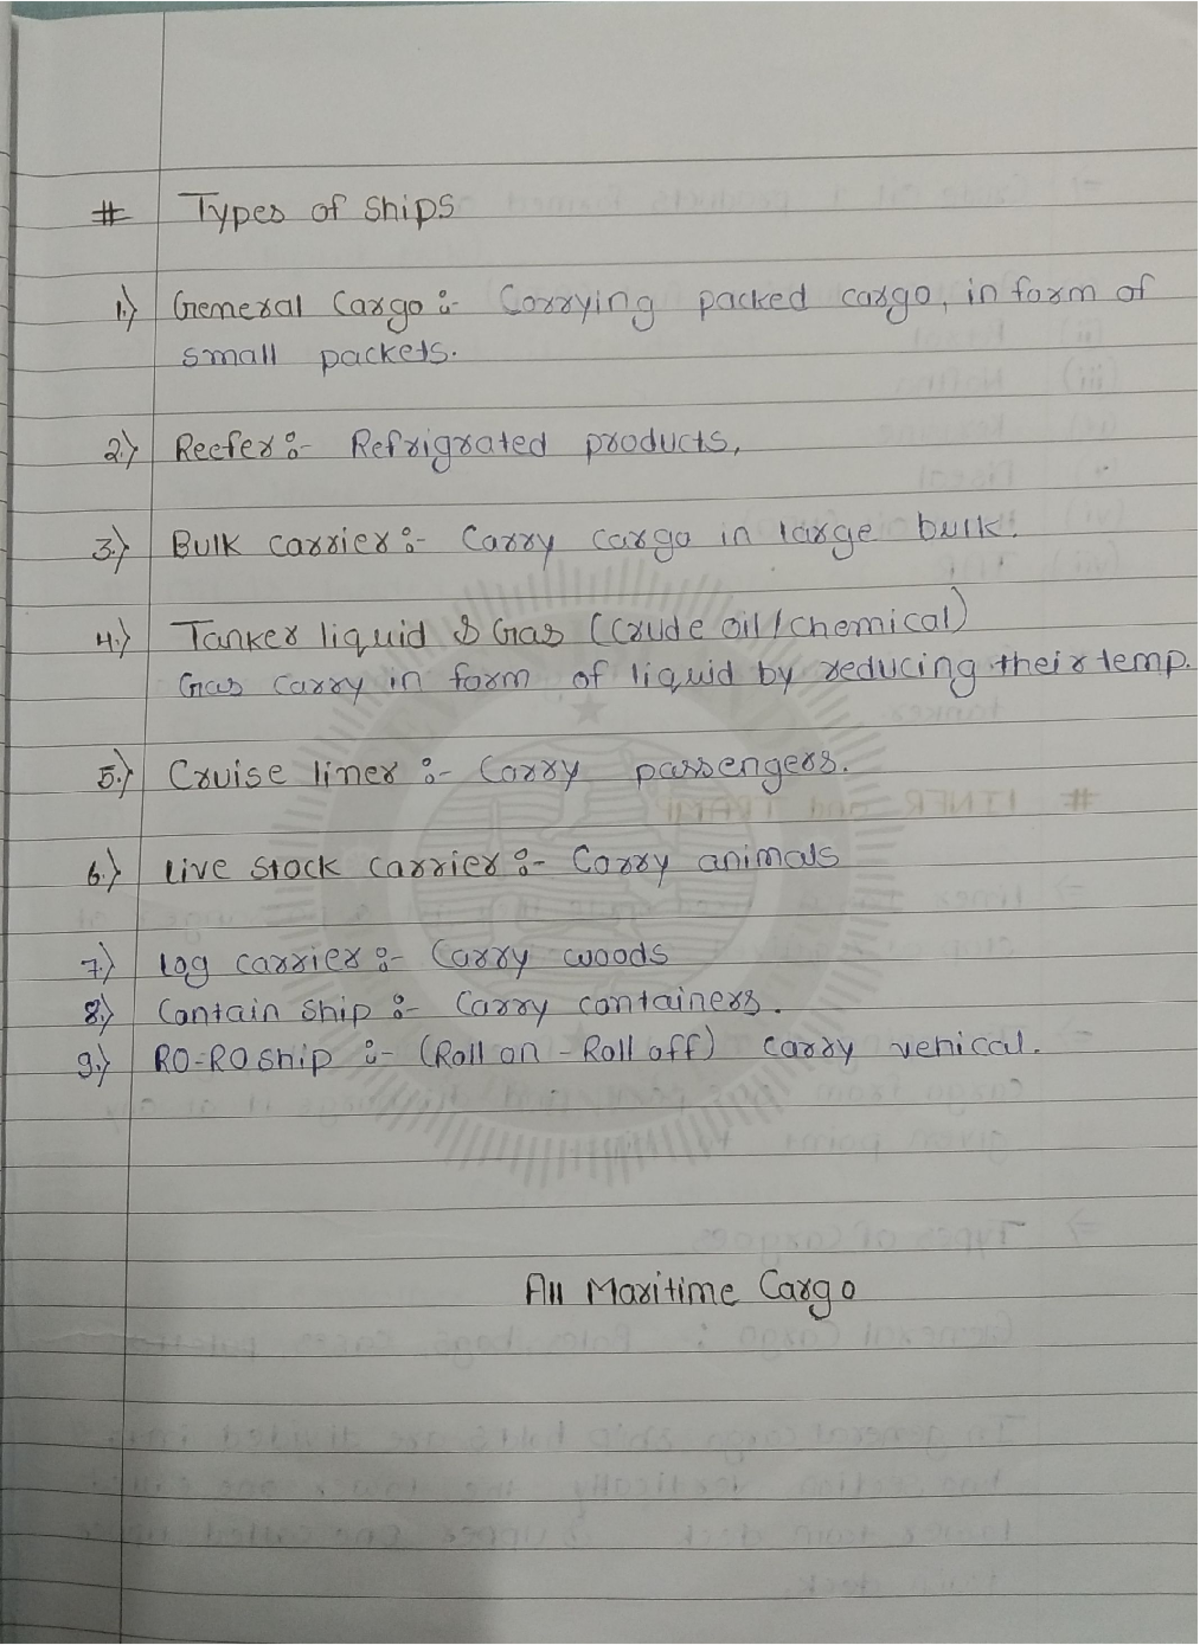 # Types of Ships
1.) General Cargo :- Carrying packed cargo, in form of
small packets.
2.) Reefer :- Refrigrated products,
3.) Bulk carrier :- Carry cargo in large bulk.
4.) Tanker liquid & Gas (Crude oil / chemical)
Gas carry in form of liquid by reducing their temp.
5.) Cruise liner :- Carry passengers.
6.) Live stock carrier :- Carry animals
7.) Log carrier :- Carry woods
8.) Contain ship :- Carry containers.
9.) RO-RO ship :- (Roll on - Roll off) carry vehical.
All Maritime Cargo